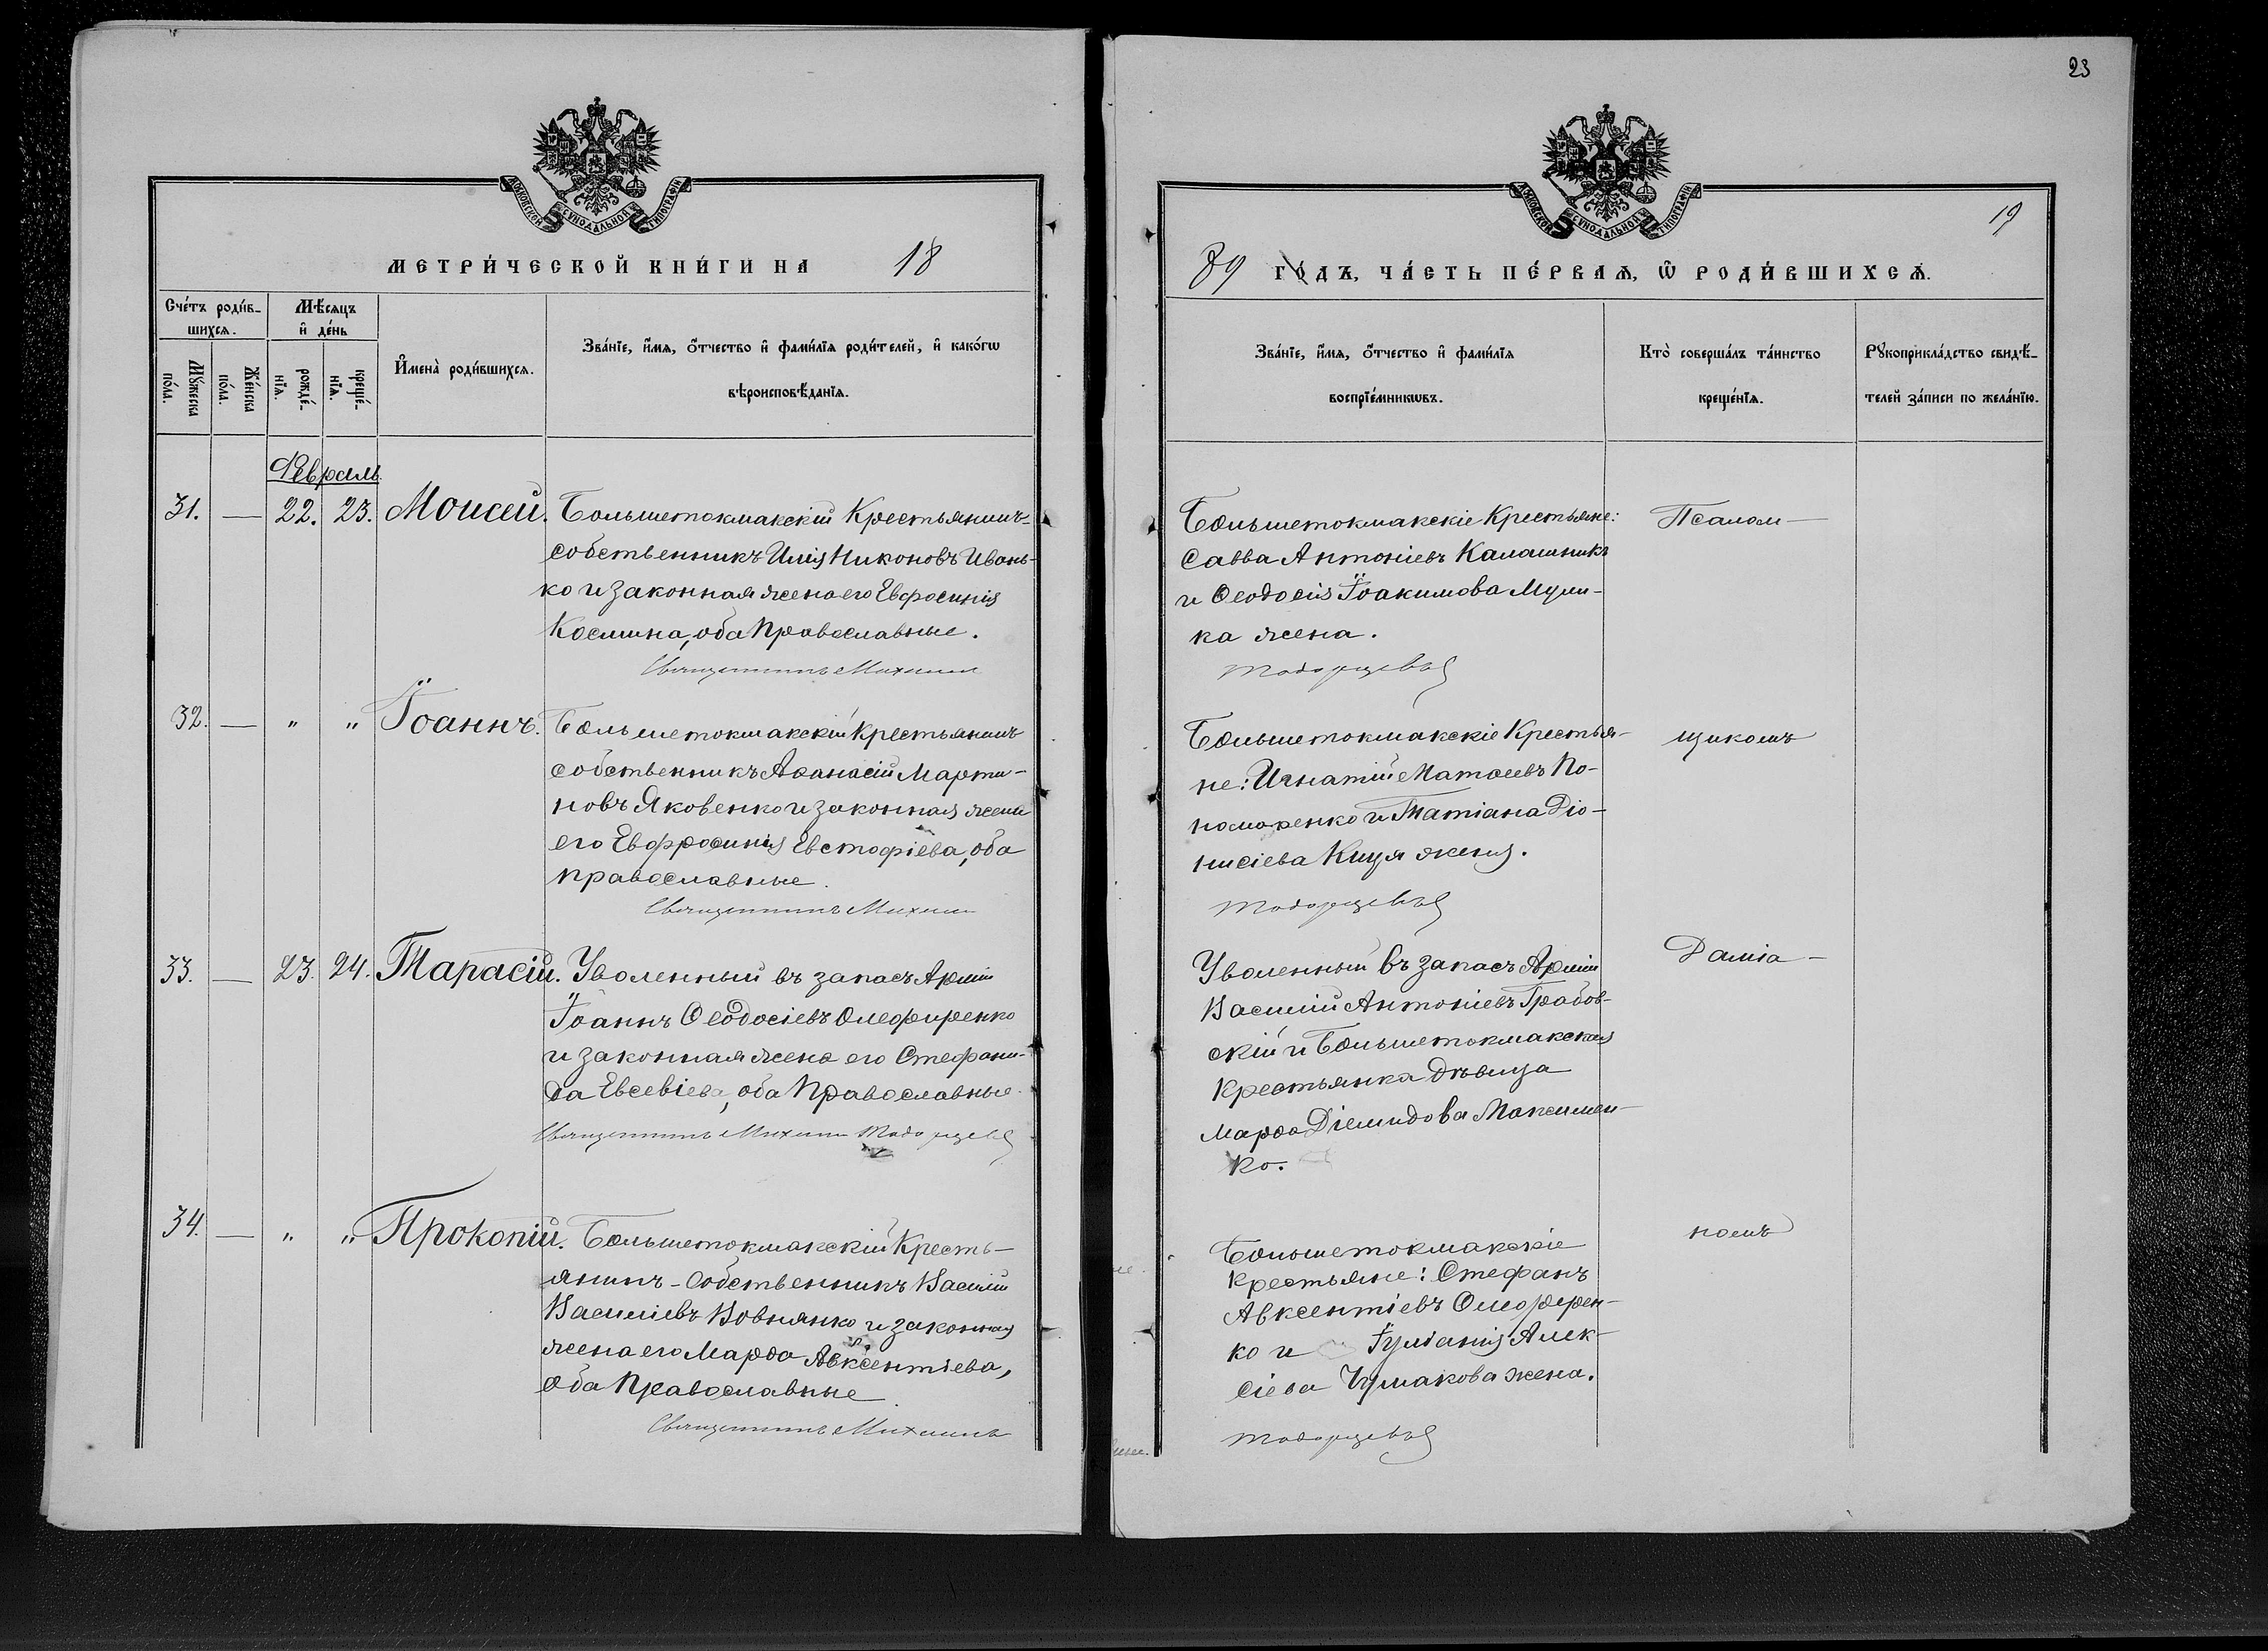 23
МОСКОВСКОЙ СѴНОДАЛЬНОЙ ТИПОГРАФІИ
МОСКОВСКОЙ СѴНОДАЛЬНОЙ ТИПОГРАФІИ
19
МЕТРИ́ЧЕСКОЙ КНИ́ГИ НА 18
89 ГО́ДЪ, ЧА́СТЬ ПЕ́РВАЯ, Ѡ РОДИ́ВШИХСѦ.
Сче́тъ роди́в-
шихсѧ.
Мꙋ́жеска по́ла.
Же́нска по́ла.
Мѣ́сѧцъ
и҆ де́нь
рожде́-
нїѧ.
креще́-
нїѧ.
И҆мена̀ роди́вшихсѧ.
Зва́нїе, и҆́мѧ, ѻ҆́тчество и҆ фами́лїѧ роди́телей, и҆ како́гѡ
вѣроисповѣ́данїѧ.
Зва́нїе, и҆́мѧ, ѻ҆́тчество и҆ фами́лїѧ
воспрїе́мникѡвъ.
Кто̀ соверша́лъ та́инство
креще́нїѧ.
Рꙋкоприкла́дство свидѣ́-
телей за́писи по жела́нїю.
Февраль
31. — 22. 23. Моисей.
Большетокмакскій Крестьянинъ-
собственникъ Илія Никоновъ Ивань-
ко и законная жена его Евфросинія
Космина, оба Православные.
Священникъ Михаилъ
Большетокмакскіе Крестьяне:
Савва Антоніевъ Калашникъ
и Ѳеодосія Іоакимова
ка жена.
Псалом-
32. — " " Іоаннъ.
Большетокмакскій Крестьянинъ
собственникъ Аѳанасій Марти-
новъ Яковенко и законная жена
его Евфросинія Евстафіева, оба
православные.
Священникъ Михаилъ
Большетокмакскіе Крестья-
не: Игнатій Матѳеевъ По-
номаренко и Татіана Діо-
нисіева Куця жена.
щикомъ
33. — 23. 24. Тарасій.
Уволенный въ запасъ Арміи
Іоаннъ Ѳеодосіевъ Олефиренко
и законная жена его Стефани-
да Евсевіева, оба Православные.
Священникъ Михаилъ
Уволенный въ запасъ Арміи
Василій Антоніевъ Грабов-
скій и Большетокмакская
Крестьянка дѣвица
Марѳа Діемидова Максимен-
ко.
Даміа-
34. — " " Прокопій.
Большетокмакскій Кресть-
янинъ-Собственникъ Василій
Василіевъ Вовнянко и законная
жена его Марѳа Авксентіева,
оба Православные.
Священникъ Михаилъ
Большетокмакскіе
крестьяне: Стефанъ
Авксентіевъ Олефирен-
ко и Іуліанія Алек-
сіева Чумакова жена.
номъ